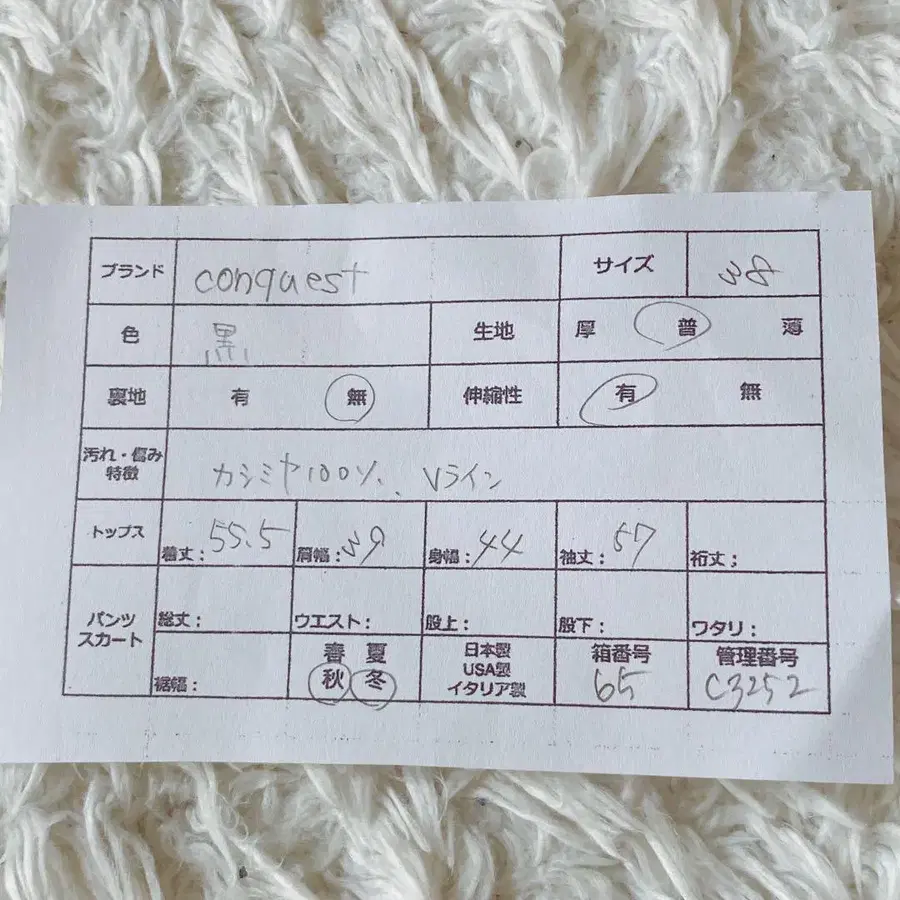 ブランド conquest サイズ 38
色 黒 生地 厚 普 薄
裏地 有 無 伸縮性 有 無
汚れ・傷み
特徴 カシミヤ100%、Vライン
トップス 着丈: 55.5 肩幅: 39 身幅: 44 袖丈: 57 裄丈;
パンツ
スカート 総丈: ウエスト: 股上: 股下: ワタリ:
裾幅: 春 夏
秋 冬
日本製
USA製
イタリア製
箱番号
65
管理番号
C3252